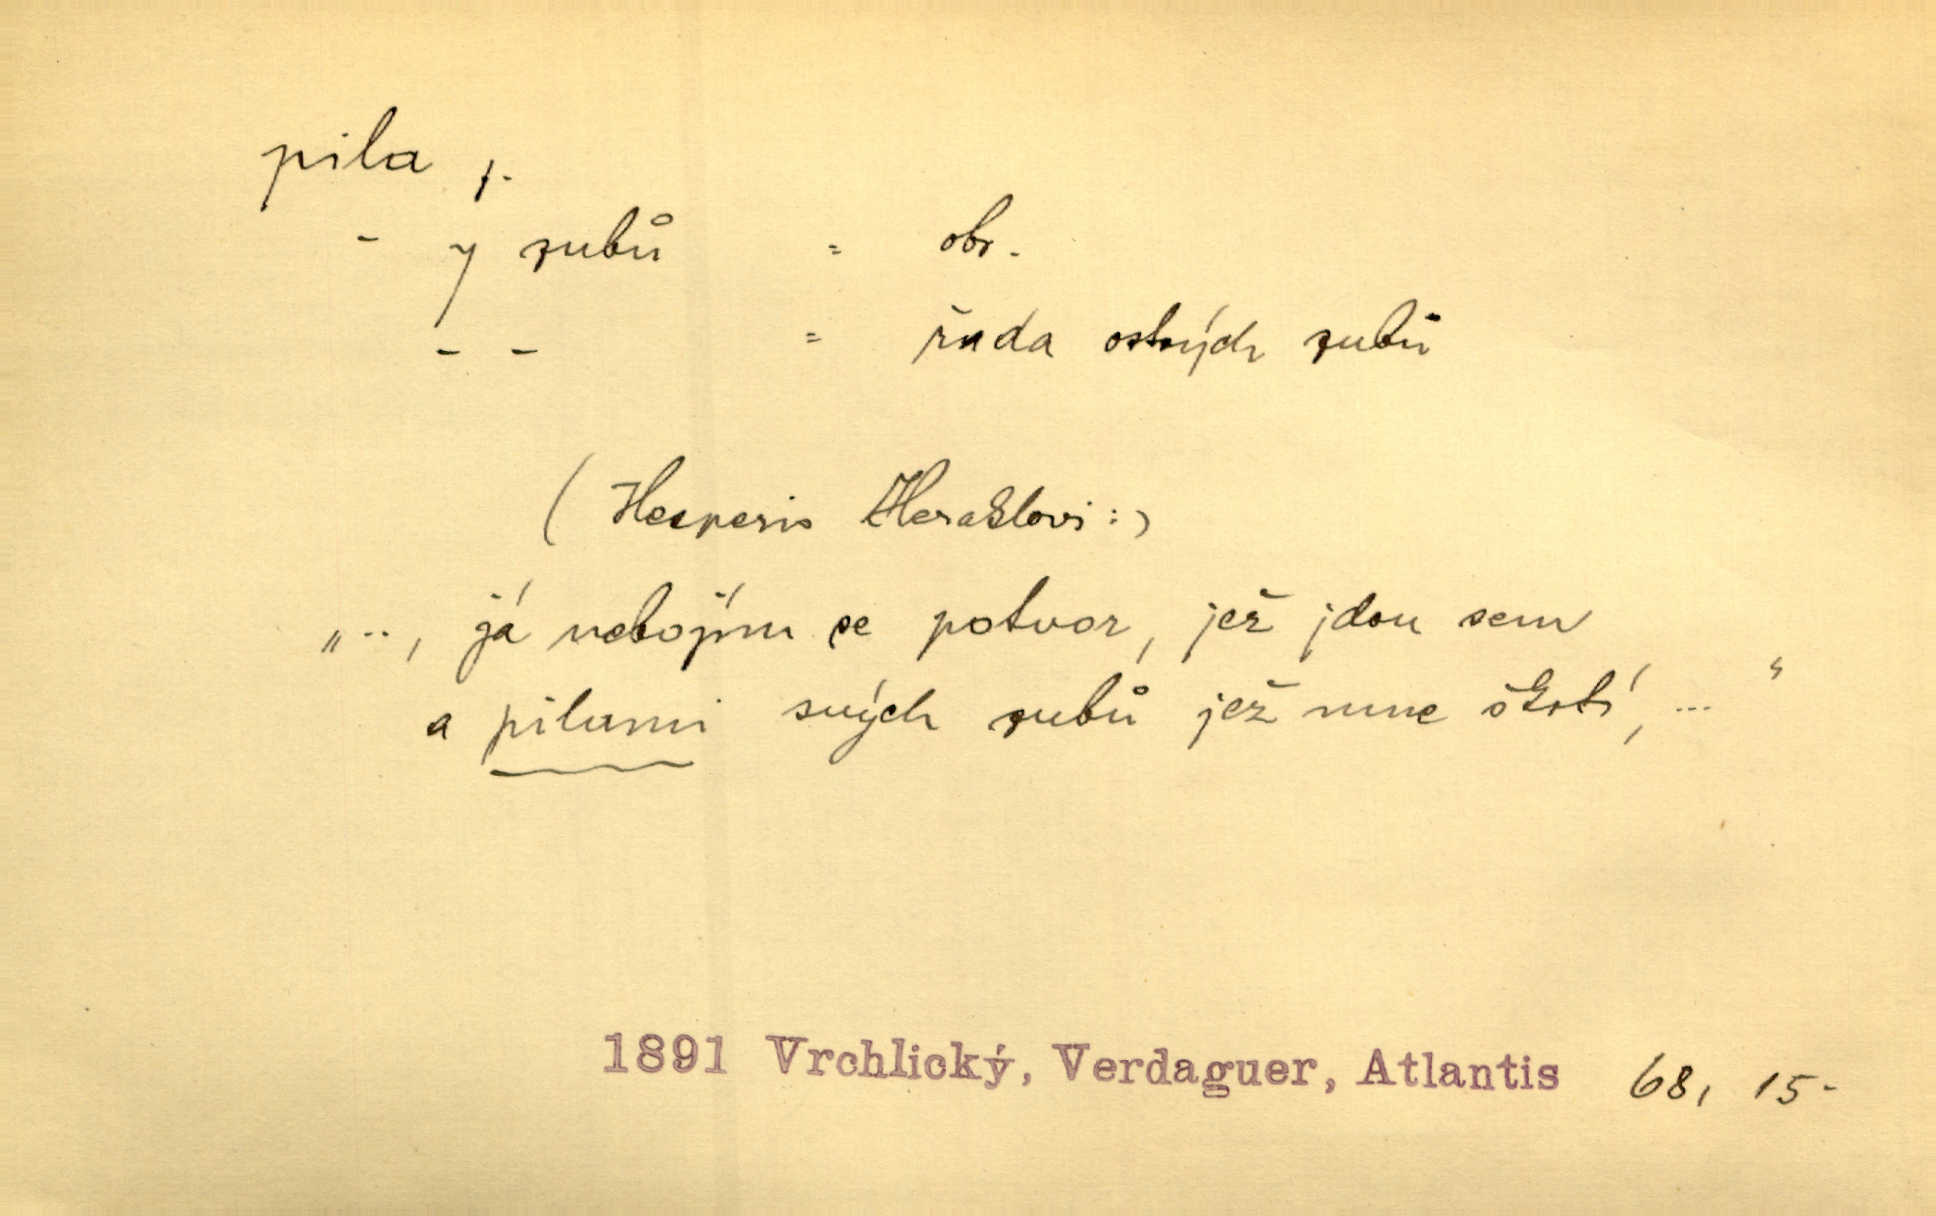 pila, f.
- y zubů = obr.
- - = řada ostrých zubů
(Hesperis Heraklovi:)
„.., já nebojím se potvor, jež jdou sem
a pilami svých zubů jež mne škrtí, ..."
1891 Vrchlický, Verdaguer, Atlantis 68, 15-